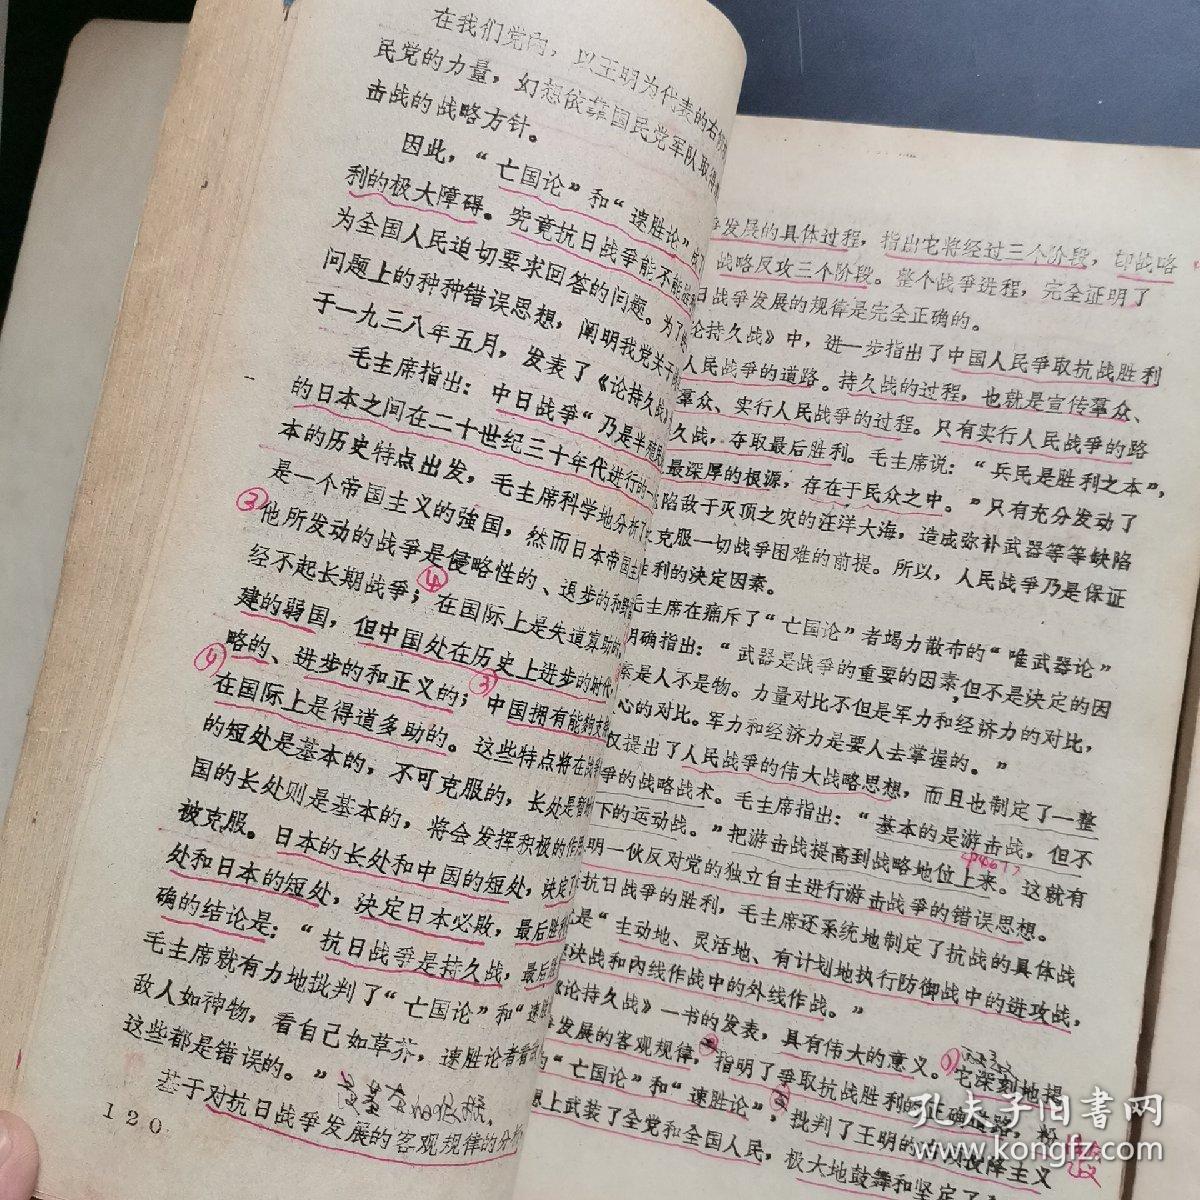 在我们党内，以王明为代表的右
民党的力量，幻想依靠国民党军队取得
击战的战略方针。
因此，“亡国论”和“速胜论”
利的极大障碍。究竟抗日战争能不能
为全国人民迫切要求回答的问题。为了
问题上的种种错误思想，阐明我党关于
于一九三八年五月，发表了《论持久战》
毛主席指出：中日战争“乃是半殖民
的日本之间在二十世纪三十年代进行的一
本的历史特点出发，毛主席科学地分析了
是一个帝国主义的強国，然而日本帝国主
③他所发动的战争是侵略性的、退步的和野
经不起长期战争；④在国际上是失道寡助的
建的弱国，但中国处在历史上进步的时代
略的、进步的和正义的；③中国拥有能夠支
④在国际上是得道多助的。这些特点将在战
的短处是基本的，不可克服的，长处是暂
国的长处则是基本的，将会发挥积极的作用
被克服。日本的长处和中国的短处，决定了
处和日本的短处，决定日本必敗，最后胜利
确的结论是：“抗日战争是持久战，最后胜
毛主席就有力地批判了“亡国论”和“速胜
敌人如神物，看自己如草芥，速胜论者看
这些都是错误的。”
基于对抗日战争发展的客观规律的分析
120
争发展的具体过程，指出它将经过三个阶段，即战略
战略反攻三个阶段。整个战争进程，完全证明了
日战争发展的规律是完全正确的。
论持久战》中，进一步指出了中国人民争取抗战胜利
人民战争的道路。持久战的过程，也就是宣传羣众、
羣众、实行人民战争的过程。只有实行人民战争的路
久战，夺取最后胜利。毛主席说：“兵民是胜利之本”，
最深厚的根源，存在于民众之中。”只有充分发动了
陷敌于灭顶之灾的汪洋大海，造成弥补武器等等缺陷
克服一切战争困难的前提。所以，人民战争乃是保证
胜利的决定因素。
毛主席在痛斥了“亡国论”者竭力散布的“唯武器论”
明确指出：“武器是战争的重要的因素，但不是决定的因
素是人不是物。力量对比不但是军力和经济力的对比，
心的对比。军力和经济力是要人去掌握的。”
仅提出了人民战争的伟大战略思想，而且也制定了一整
争的战略战术。毛主席指出：“基本的是游击战，但不
下的运动战。”把游击战提高到战略地位上来。这就有
明一伙反对党的独立自主进行游击战争的错误思想。
抗日战争的胜利，毛主席还系统地制定了抗战的具体战
是“主动地、灵活地、有计划地执行防御战中的进攻战，
决战和內线作战中的外线作战。”
《论持久战》一书的发表，具有伟大的意义。①它深刻地提
争发展的客观规律，②指明了争取抗战胜利的正确道路，粉
“亡国论”和“速胜论”，③批判了王明的右倾投降主义
想上武装了全党和全国人民，极大地鼓舞和坚定了
孔夫子旧书网
www.kongfz.com